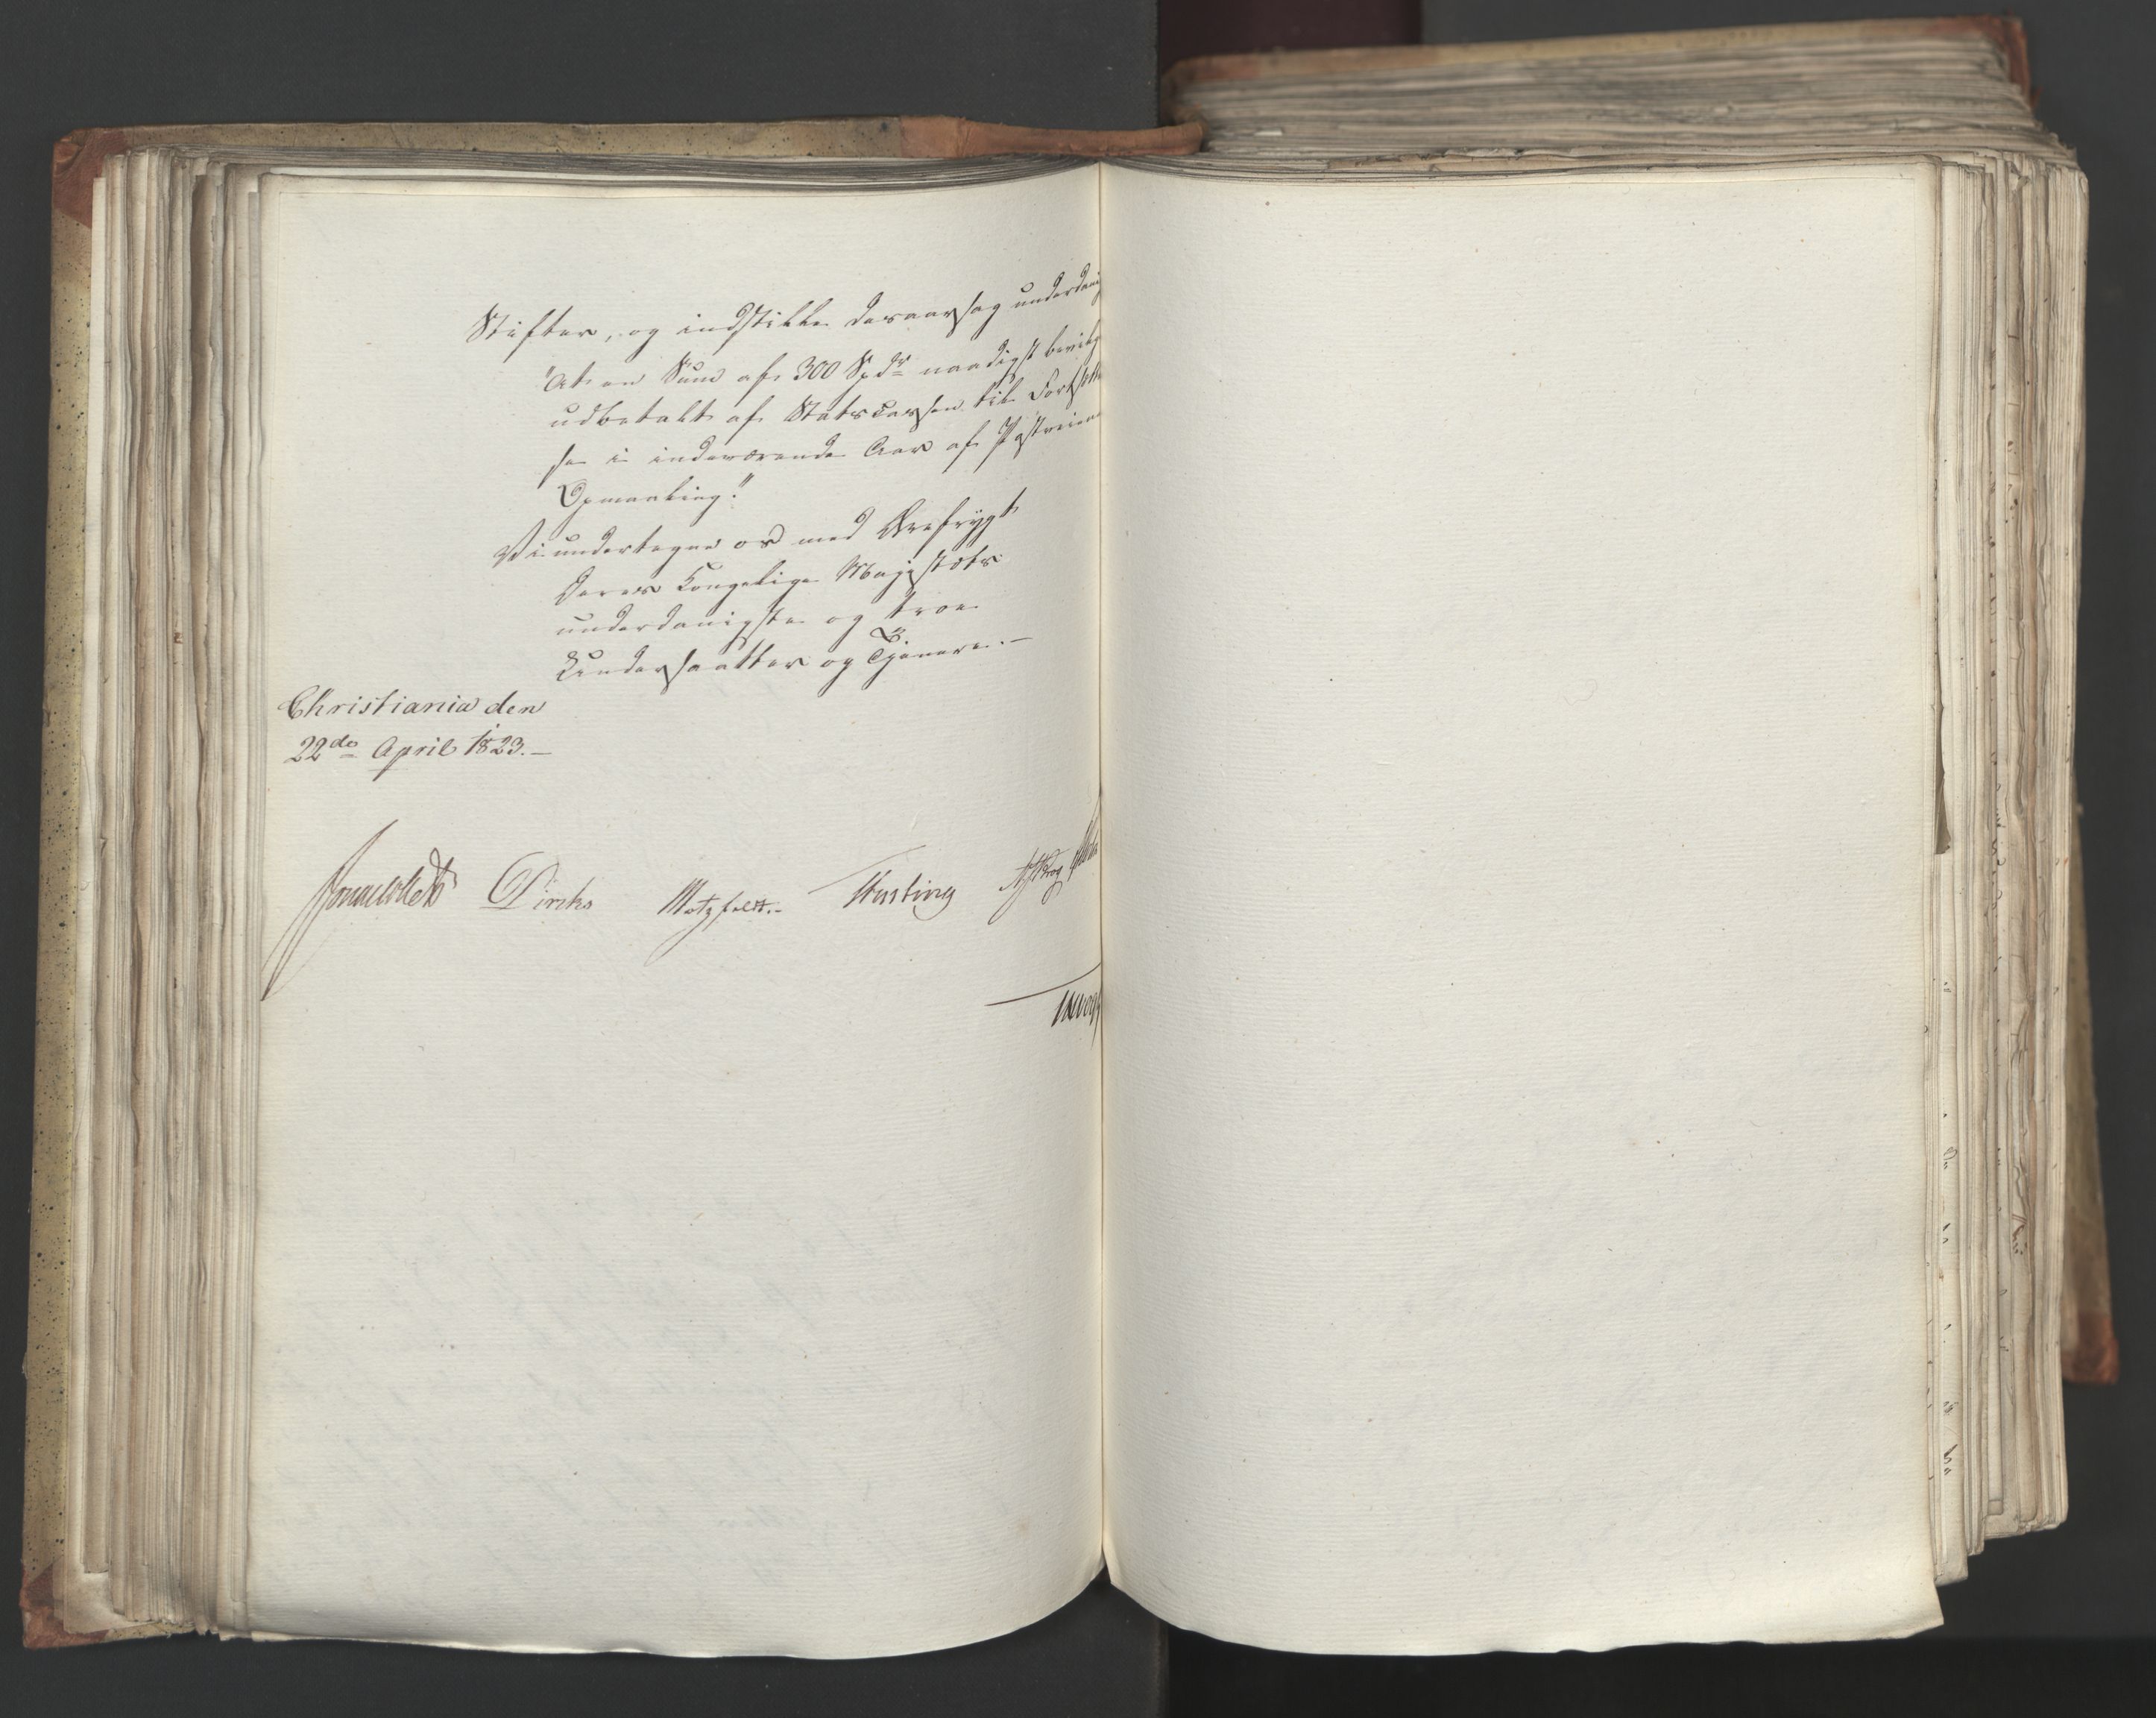 Stifter, og indstille desaarsag underdanig
"At en Sum af 300 Spdr naadigst bevilg
udbetalt af Statscassen til Fortsættel
se i indeværende Aar af
Opmaaling."
Vi undertegne os med Ærefrygt
Deres Kongelige Majestæts
underdanigste og troe
Undersaatter og Tjenere.—
Christiania den
22de April 1823.—
Sommerhielm Diriks Motzfeldt.— Fasting